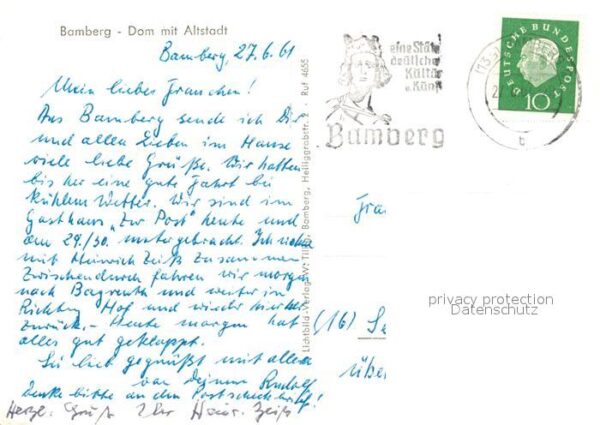 Bamberg - Dom mit Altstadt
Bamberg, 27.6.61
Mein liebes Frauchen!
Aus Bamberg sende ich Dir
und allen Lieben im Hause
viele liebe Grüße. Wir hatten
bis her eine gute Fahrt bei
kühlem Wetter. Wir sind im
Gasthaus "Zur Post" heute und
am 29./30. untergebracht. Ich
mit Heinrich Zeiß zusammen
Zwischendurch fahren wir morgen
nach Bayreuth und weiter in
Richtung Hof und wieder hierher
zurück. - Heute morgen hat
alles gut geklappt.
Sei lieb gegrüßt mit allen
von Deinem Rudolf
Denke bitte an den Postscheckbrief!
Herzl. Gruß Ihr Heinr. Zeiß
Lichtbild-Verlag W. Tillig, Bamberg, Heiliggrabstr. Ruf 4655
eine Stätte
deutscher
Kultur
u. Kunst
Bamberg
DEUTSCHE BUNDESPOST
10
b
Frau
(16)
über
privacy protection
Datenschutz